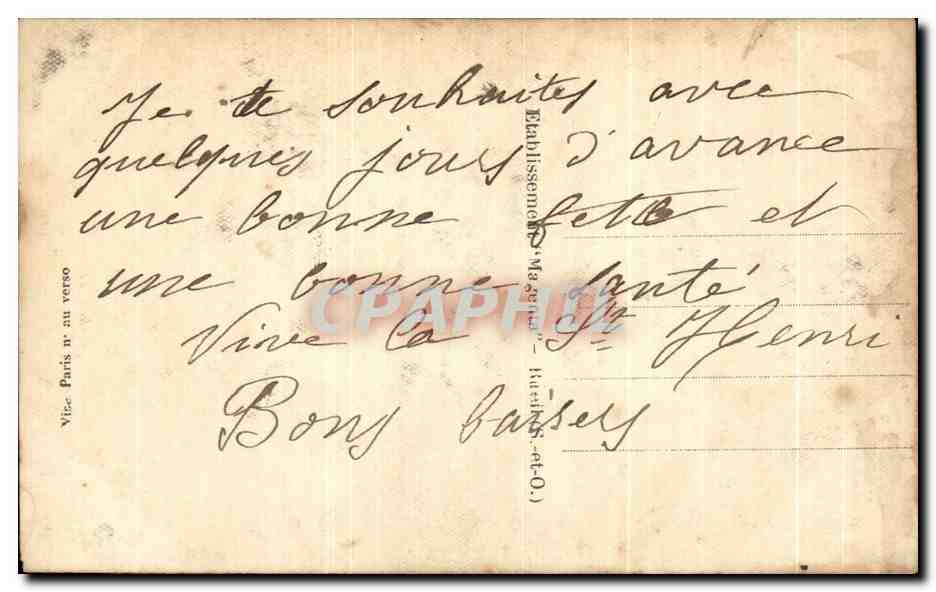 Je te souhaites avec
quelques jours d'avance
une bonne fette et
une bonne santé
Vive la St Henri
Bons baisers
Etablissement "Magenta" - -et-O.)
Vise Paris n° au verso
CPAPHIL